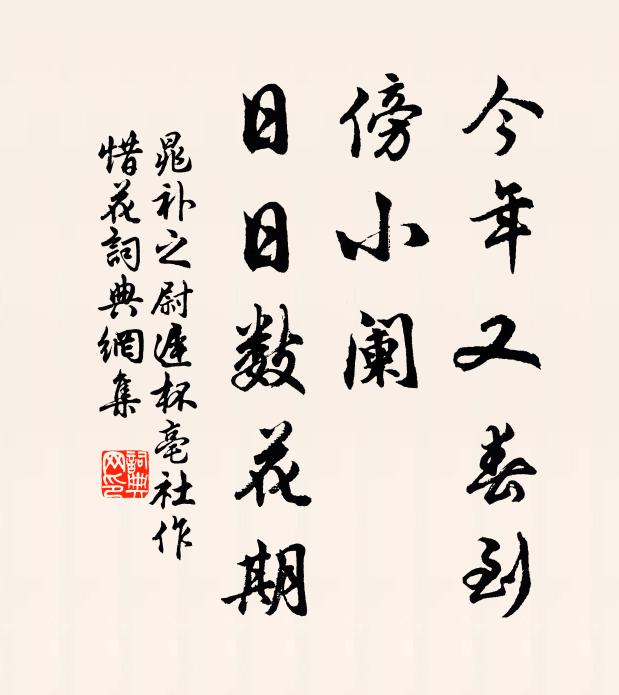 今年又春到
傍小阑
日日数花期
晁补之尉遲杯亳社作
惜花詞典網集
詞典网印